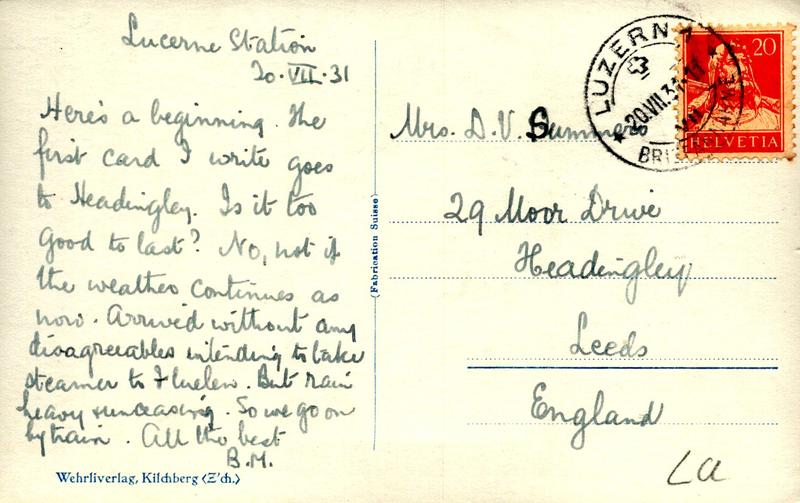 Lucerne Station
20·VII·31
Here's a beginning. The
first card I write goes
to Headingley. Is it too
good to last? No, not if
the weather continues as
now. Arrived without any
disagreeables intending to take
steamer to Fluelen. But rain
heavy & unceasing. So we go on
by train. All the best
B.M.
Wehrliverlag, Kilchberg (Z'ch.)
(Fabrication Suisse)
LUZERN 1
20.VII.31
20
HELVETIA
Mrs. D. V. Summers
29 Moor Drive
Headingley
Leeds
England